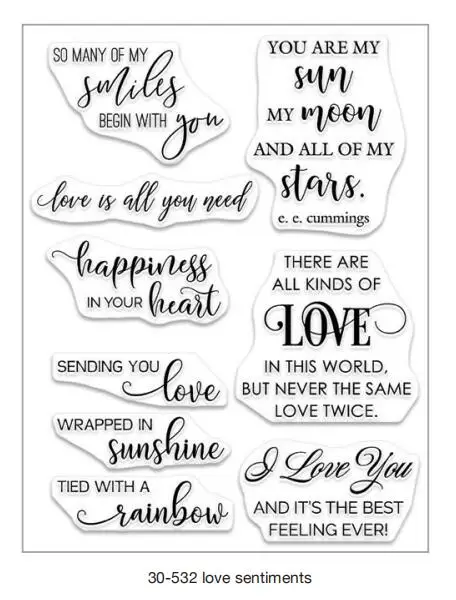 SO MANY OF MY
smiles
BEGIN WITH you
love is all you need
happiness
IN YOUR heart
SENDING YOU
love
WRAPPED IN
sunshine
TIED WITH A
rainbow
YOU ARE MY
sun
MY moon
AND ALL OF MY
stars.
e. e. cummings
THERE ARE
ALL KINDS OF
LOVE
IN THIS WORLD,
BUT NEVER THE SAME
LOVE TWICE.
I Love You
AND IT'S THE BEST
FEELING EVER!
30-532 love sentiments